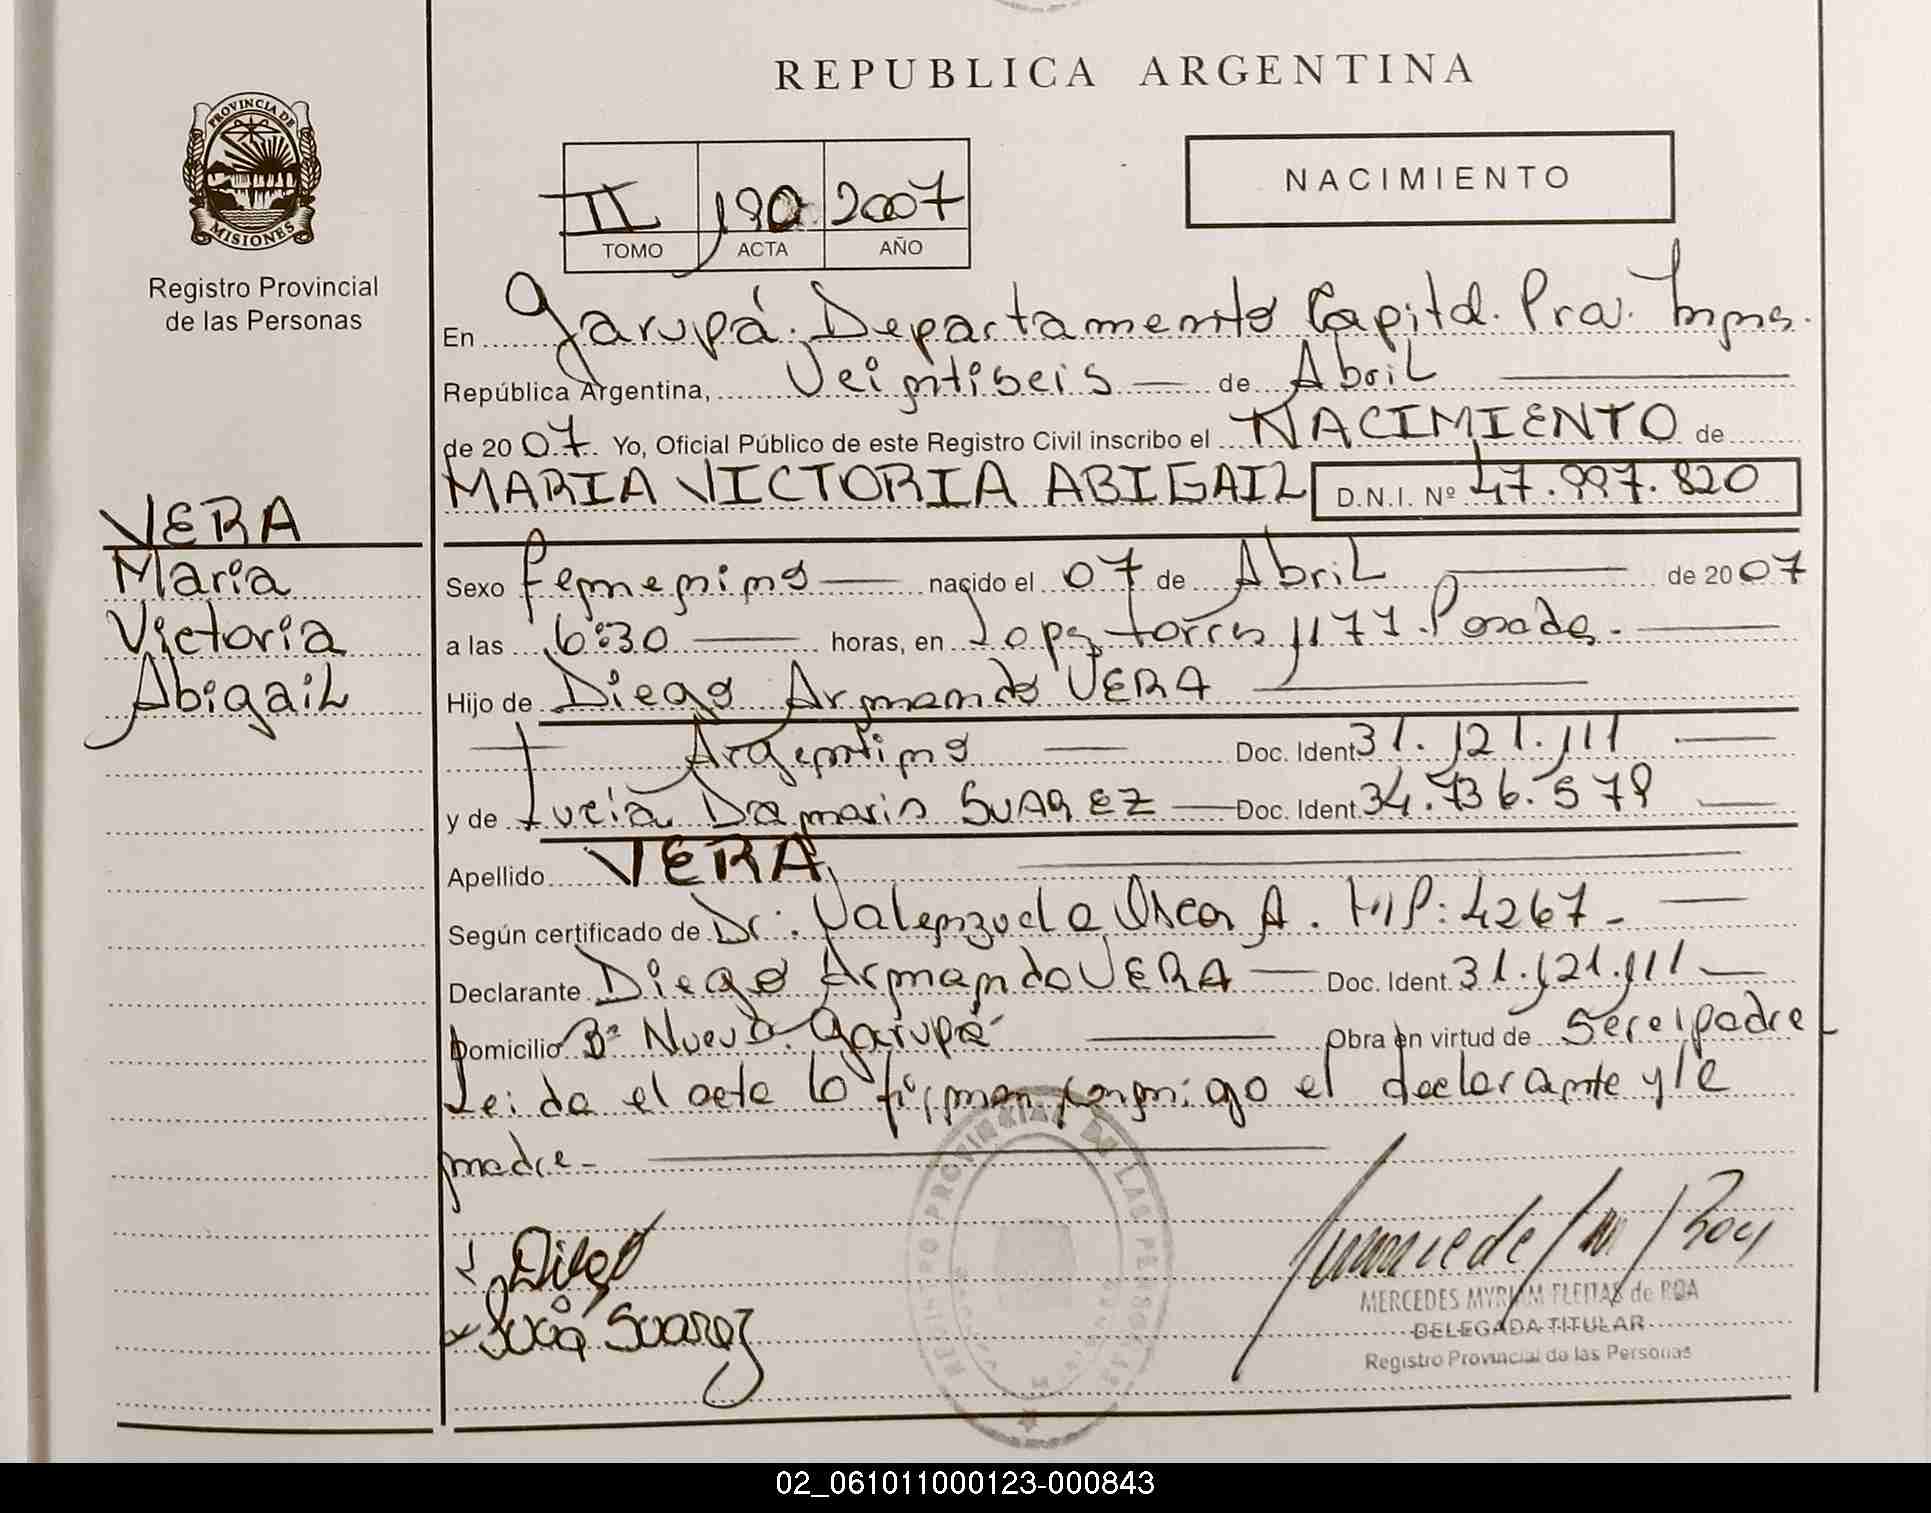 REPUBLICA ARGENTINA
PROVINCIA DE
MISIONES
Registro Provincial
de las Personas
II 190 2007
TOMO ACTA AÑO
NACIMIENTO
En Garupá. Departamento Capital. Prov. Mnes.
República Argentina, Veintiseis — de Abril
de 2007. Yo, Oficial Público de este Registro Civil inscribo el NACIMIENTO de
MARIA VICTORIA ABIGAIL D.N.I. Nº 47.997.820
VERA
Maria
Victoria
Abigail
Sexo femenino — nacido el 07 de Abril — de 2007
a las 6:30 — horas, en Lopz torres 1177. Posadas. —
Hijo de Diego Armando VERA —
Argentino — Doc. Ident. 31.121.111 —
y de Lucia Damaris SUAREZ — Doc. Ident. 34.736.578 —
Apellido VERA
Según certificado de Dr: Valenzuela Oscar A. M.P: 4267 - —
Declarante Diego Armando VERA — Doc. Ident. 31.121.111 —
Domicilio Bº Nuevo. Garupá — Obra en virtud de ser el padre
Leida el acta lo firman conmigo el declarante y la
madre -
Diego
Lucia Suarez
REGISTRO PROVINCIAL DE LAS PERSONAS
MERCEDES MYRIAM FLEITAS de ROA
DELEGADA TITULAR
Registro Provincial de las Personas
02_061011000123-000843